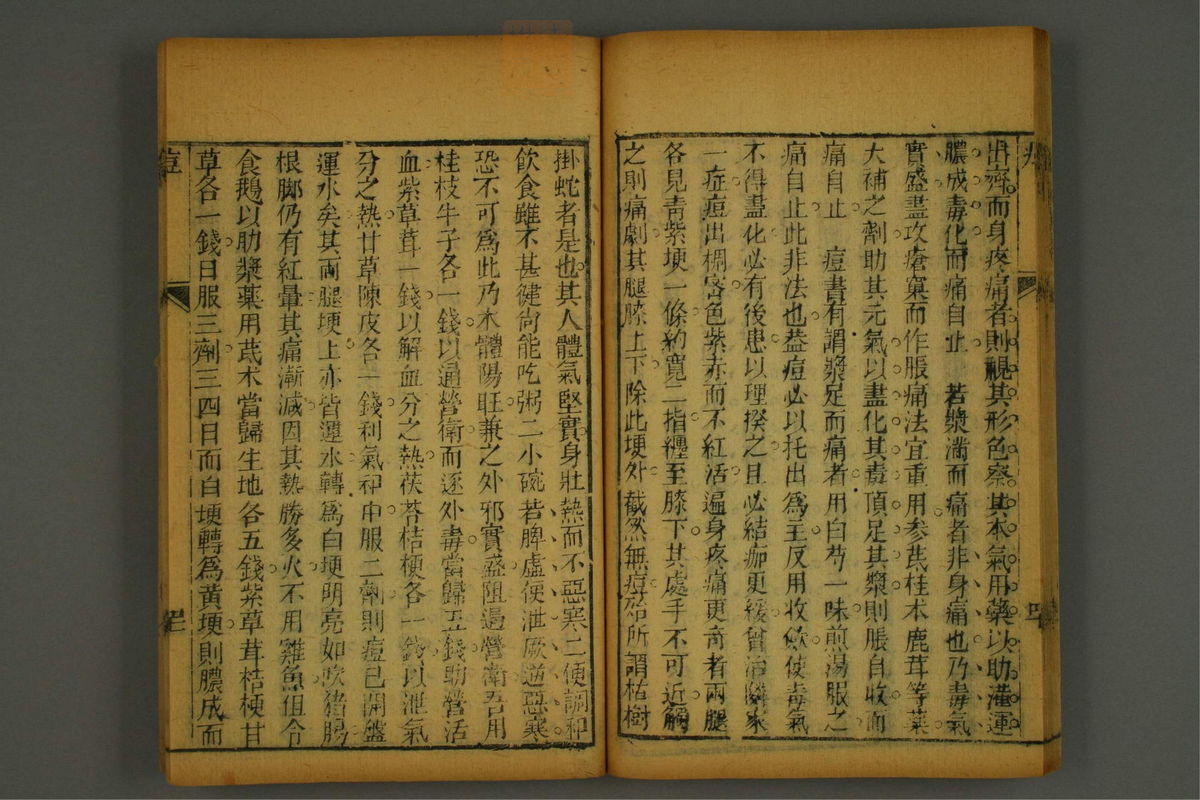 出齊而身疼痛者則視其形色察其本氣用藥以助灌運
膿成毒化而痛自止　若漿滿而痛者非身痛也乃毒氣
實盛盡攻瘡窠而作脹痛法宜重用參芪桂朮鹿茸等藥
大補之劑助其元氣以盡化其毒頂足其漿則脹自收而
痛自止　痘書有謂漿足而痛者用白芍一味煎湯服之
痛自止此非法也葢痘必以托出為主反用收歛使毒氣
不得盡化必有後患以理揆之且必結痂更緩曾治隣家
一症痘出稠密色紫赤而不紅活遍身疼痛更奇者兩腿
各見青紫埂一條約寬二指纏至膝下其處手不可近觸
之則痛劇其腿膝上下除此埂外截然無痘所謂枯樹
掛蛇者是也其人體氣堅實身壯熱而不惡寒二便調和
飲食雖不甚健尚能吃粥二小碗若脾虛便泄厥逆惡寒
恐不可為此乃木體陽旺兼之外邪實盛阻遏營衛吾用
桂枝牛子各一錢以通營衛而逐外毒當歸五錢助營活
血紫草茸一錢以解血分之熱茯苓桔梗各一錢以泄氣
分之熱甘草陳皮各一錢利氣和中服二劑則痘已開盤
運水矣其兩腿埂上亦皆運水轉為白埂明亮如吹豬腸
根脚仍有紅暈其痛漸減因其熱勝多火不用雞魚但令
食鵝以助漿藥用芪朮當歸生地各五錢紫草茸桔梗甘
草各一錢日服三劑三四日而白埂轉為黃埂則膿成而